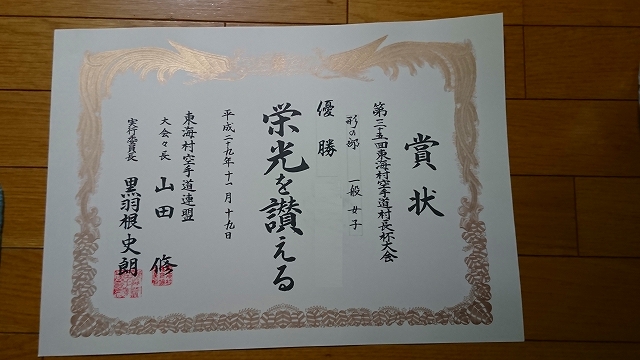 賞状
第三十五回東海村空手道村長杯大会
形の部 一般女子
優勝
栄光を讃える
平成二十九年十一月十九日
東海村空手道連盟
大会々長 山田 修
実行委員長 黒羽根史朗